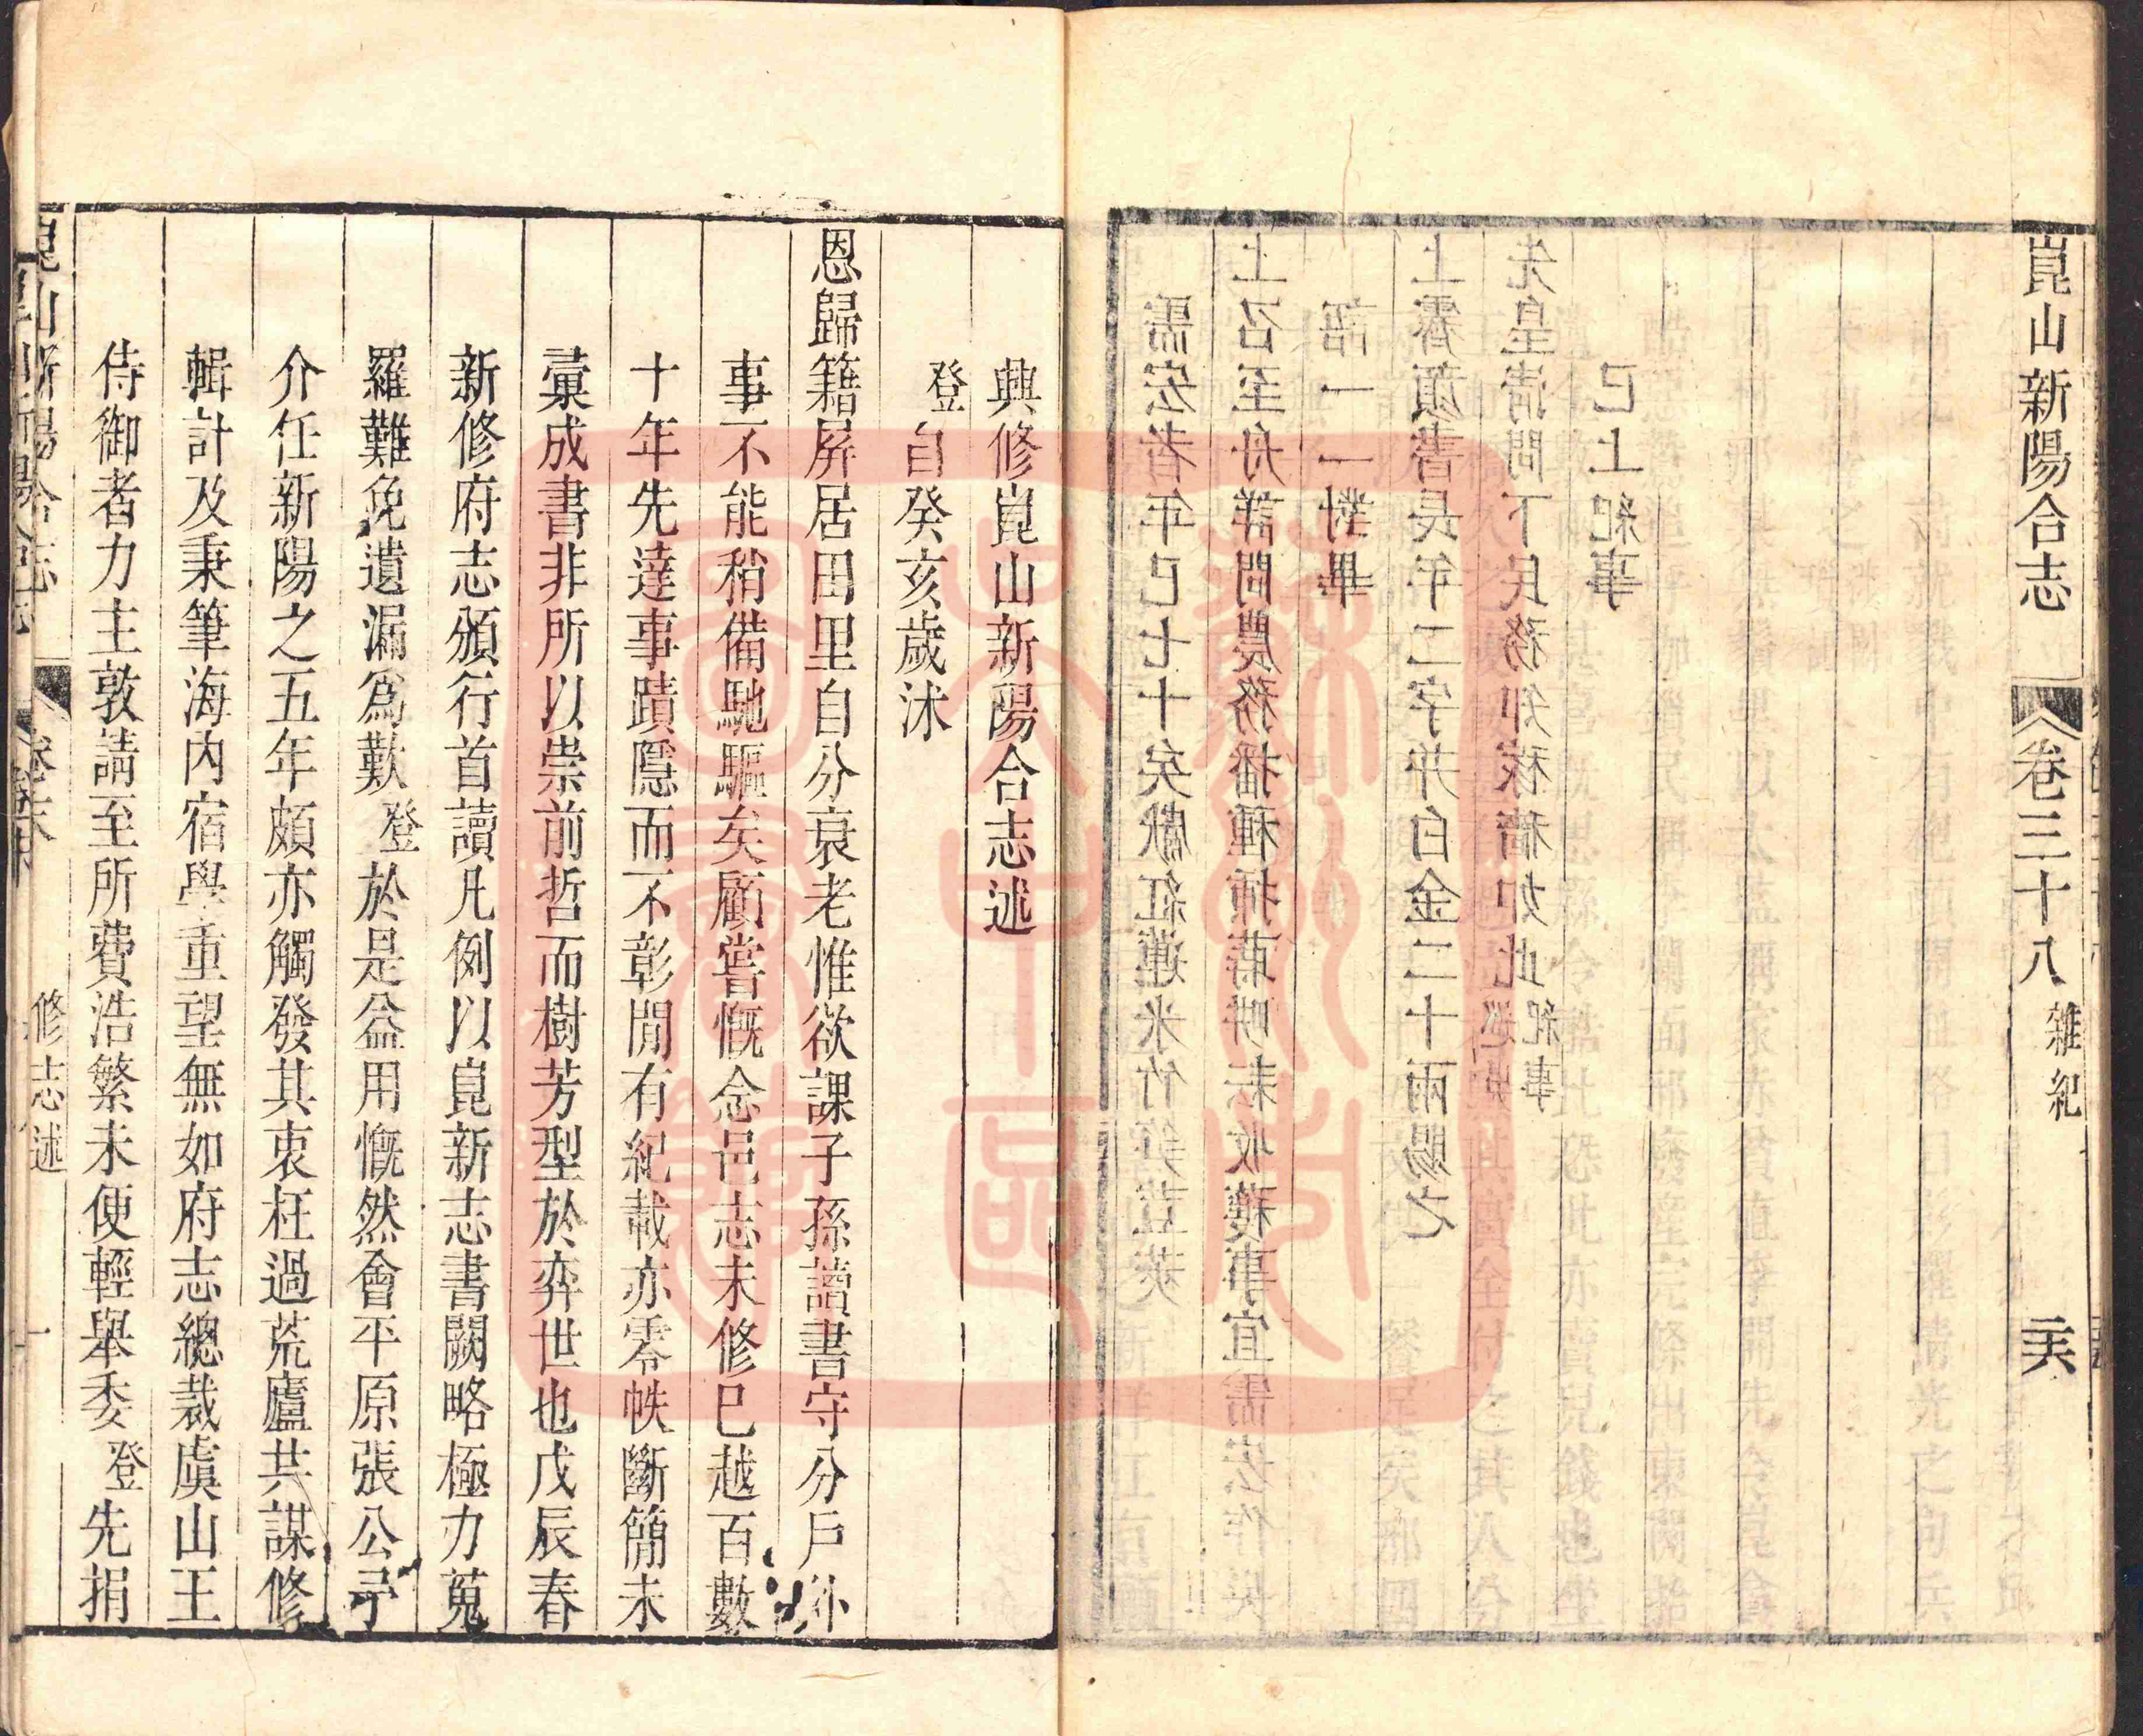 崑山新陽合志 卷三十八 雜紀 二十六
興修崑山新陽合志述
登自癸亥歲沐
恩歸籍屏居田里自分衰老惟欲課子孫讀書守分戶外
事不能稍備馳驅矣顧嘗慨念邑志未修已越百數
十年先達事蹟隱而不彰間有紀載亦零帙斷簡未
彙成書非所以崇前哲而樹芳型於弈世也戊辰春
新修府志頒行首讀凡例以崑新志書闕略極力蒐
羅難免遺漏為歎登於是益用慨然會平原張公予
介任新陽之五年頗亦觸發其衷枉過荒廬共謀修
輯計及秉筆海內宿學重望無如府志總裁虞山王
侍御者力主敦請至所費浩繁未便輕舉委登先捐
崑山新陽合志 卷末 修志述 一